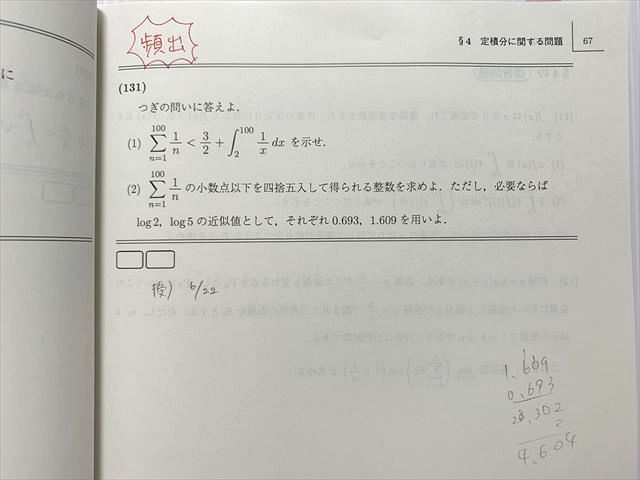 頻出
§4 定積分に関する問題 67
(131)
つぎの問いに答えよ.
(1) \sum_{n=1}^{100} \frac{1}{n} < \frac{3}{2} + \int_{2}^{100} \frac{1}{x} dx を示せ.
(2) \sum_{n=1}^{100} \frac{1}{n} の小数点以下を四捨五入して得られる整数を求めよ. ただし, 必要ならば
log 2, log 5 の近似値として, それぞれ 0.693, 1.609 を用いよ.
6/22
1.609
0.693
2.302
2
4.604
に